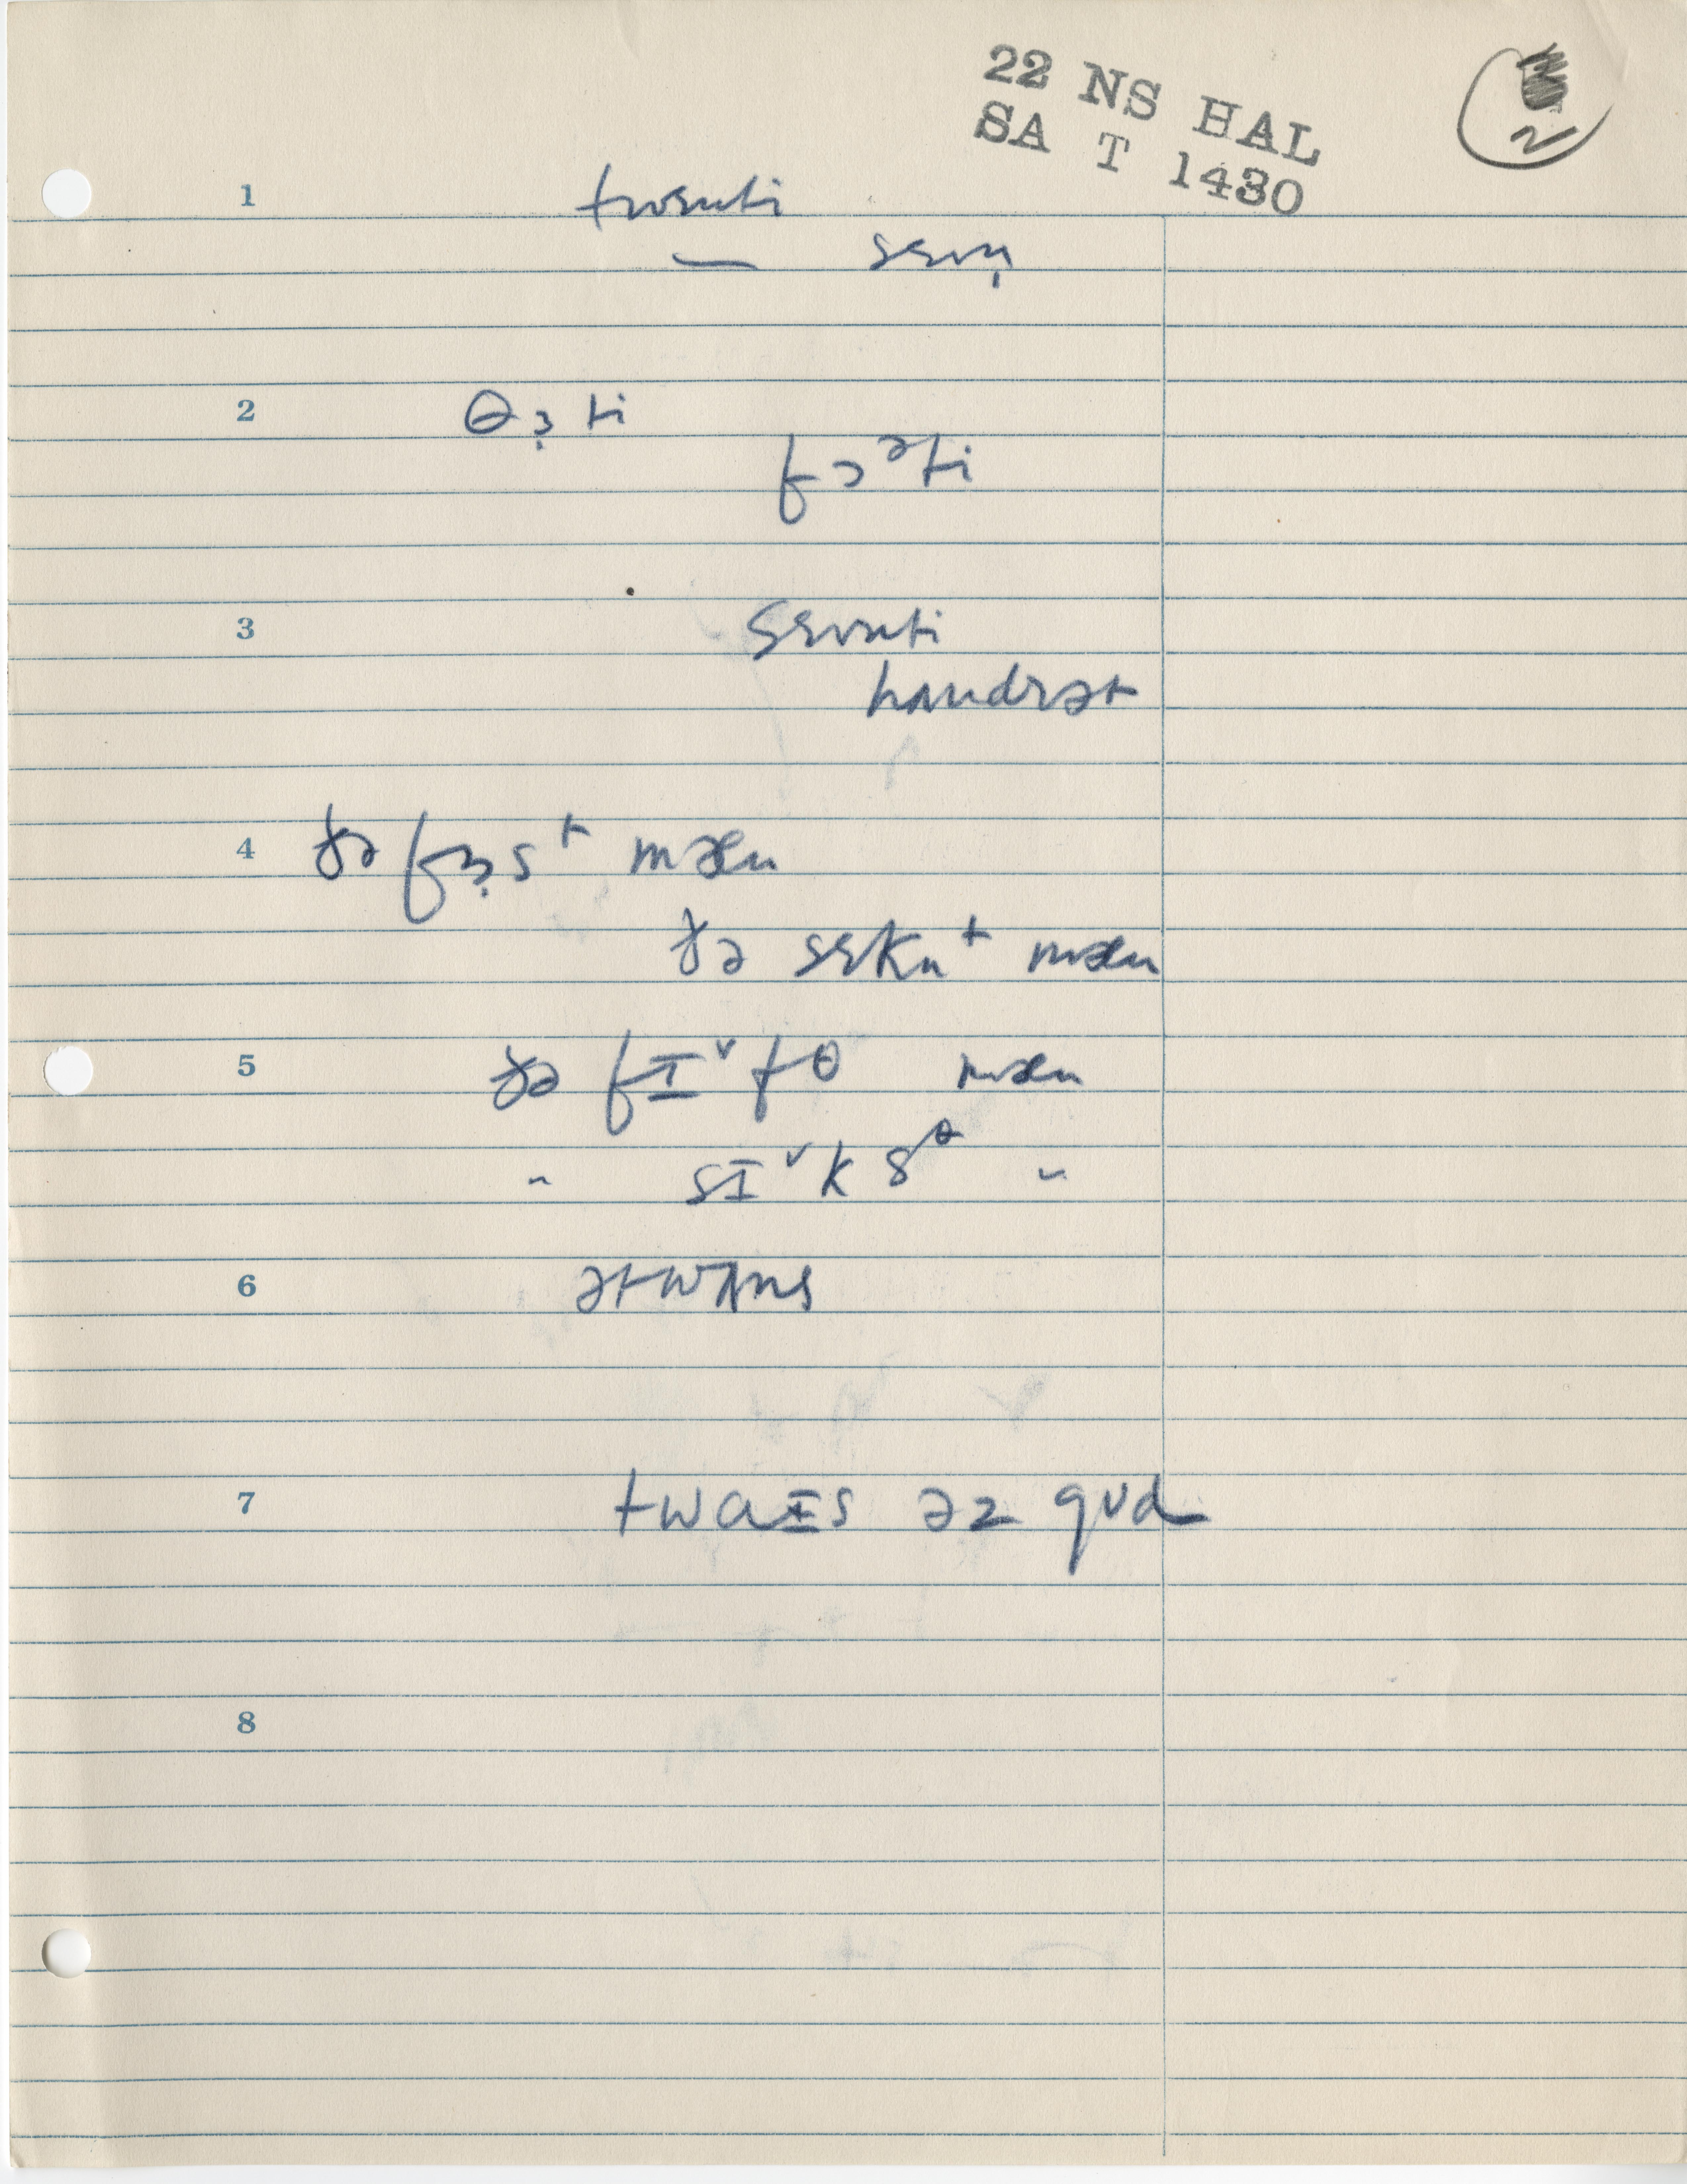 22 NS HAL
SA T 1430
2
1 twɛnti
— sɛvn̩
2 θɜ̣ti
fɔᵊti
3 sɛvnti
hʌndrət
4 ðə fɜ̣sᵗ mæn
ðə sɛknᵗ mæn
5 ðə fɪˇfθ mæn
" sɪˇksᶿ "
6 ətwʌns
7 twaɪs əz gʊd
8